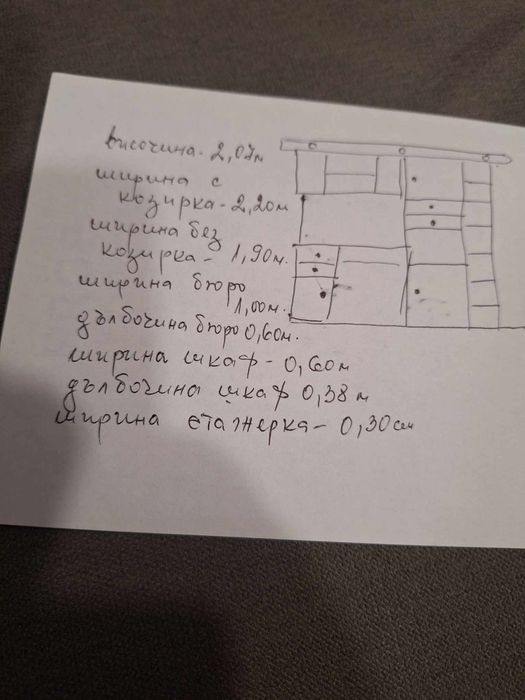 височина - 2,07м
ширина с
козирка - 2,20м
ширина без
козирка - 1,90м.
ширина бюро
1,00м.
дълбочина бюро 0,60м.
ширина шкаф - 0,60м
дълбочина шкаф 0,38 м
ширина етажерка - 0,30см